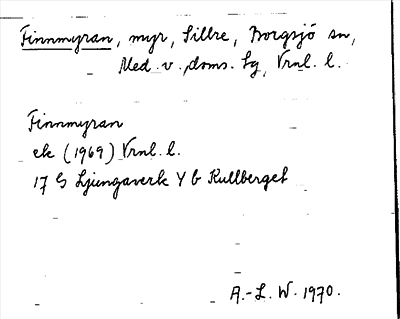 Finnmyran, myr, Sillre, Borgsjö sn,
Med. v. doms. lg, Vrnl. l.
Finnmyran
ek (1969) Vrnl. l.
17 G Ljungaverk Y b Kullberget
A.-L. W. 1970.